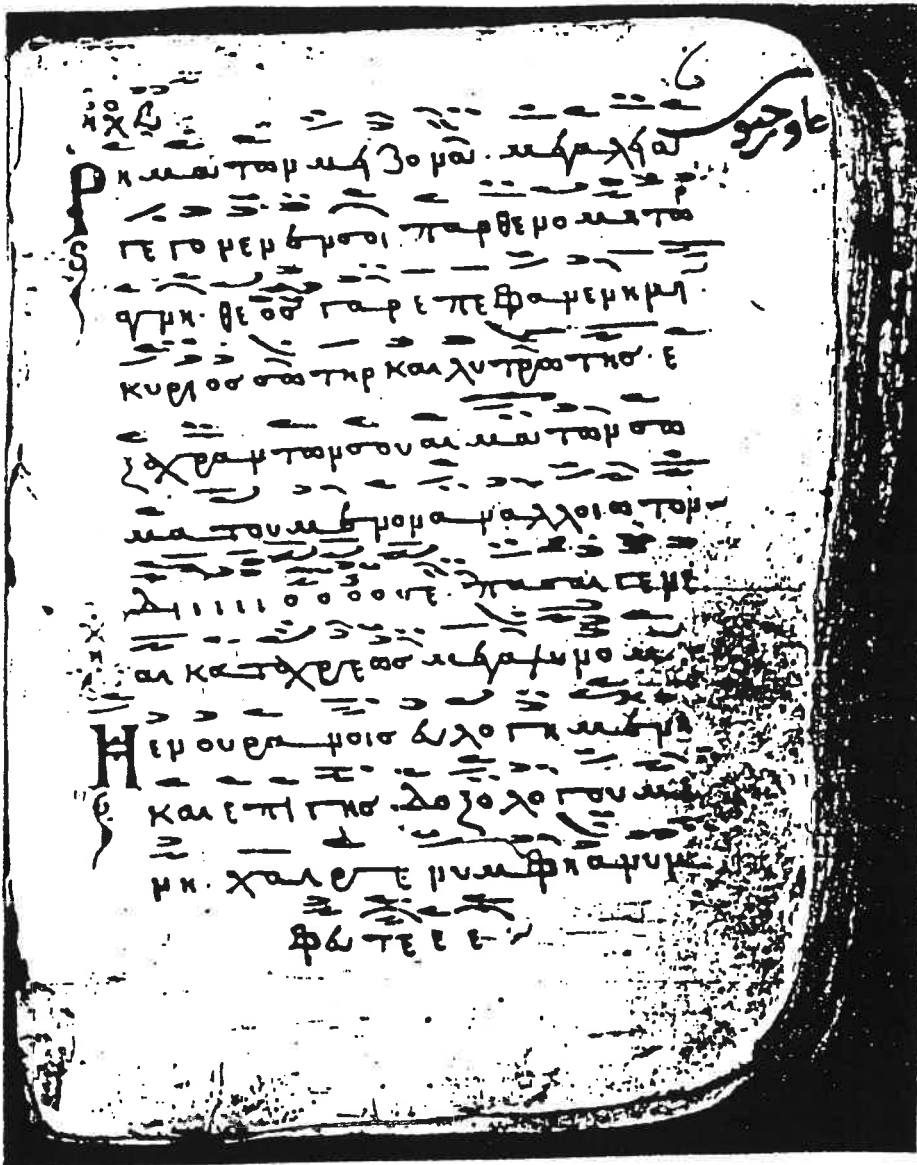 6
ηχ β
Ρηματων μειζονα. μεγαλεια
γεγονεν εν σοι παρθενομητωρ
αγνη. θεοσ γαρ επεφανεν ημιν.
κυριοσ σωτηρ και λυτρωτησ. ε
ξαχραντων σου αιματων σω
ματουμενον αναλλοιωτον
διιιιιοοοοπε. πασαι γενε
αι κατα χρεωσ μεγαλυνομεν
Η εν ουρανοισ ευλογημενη
και επι γησ. δοξολογουμε
νη. χαιρε νυμφη ανυμ
φευτεεε